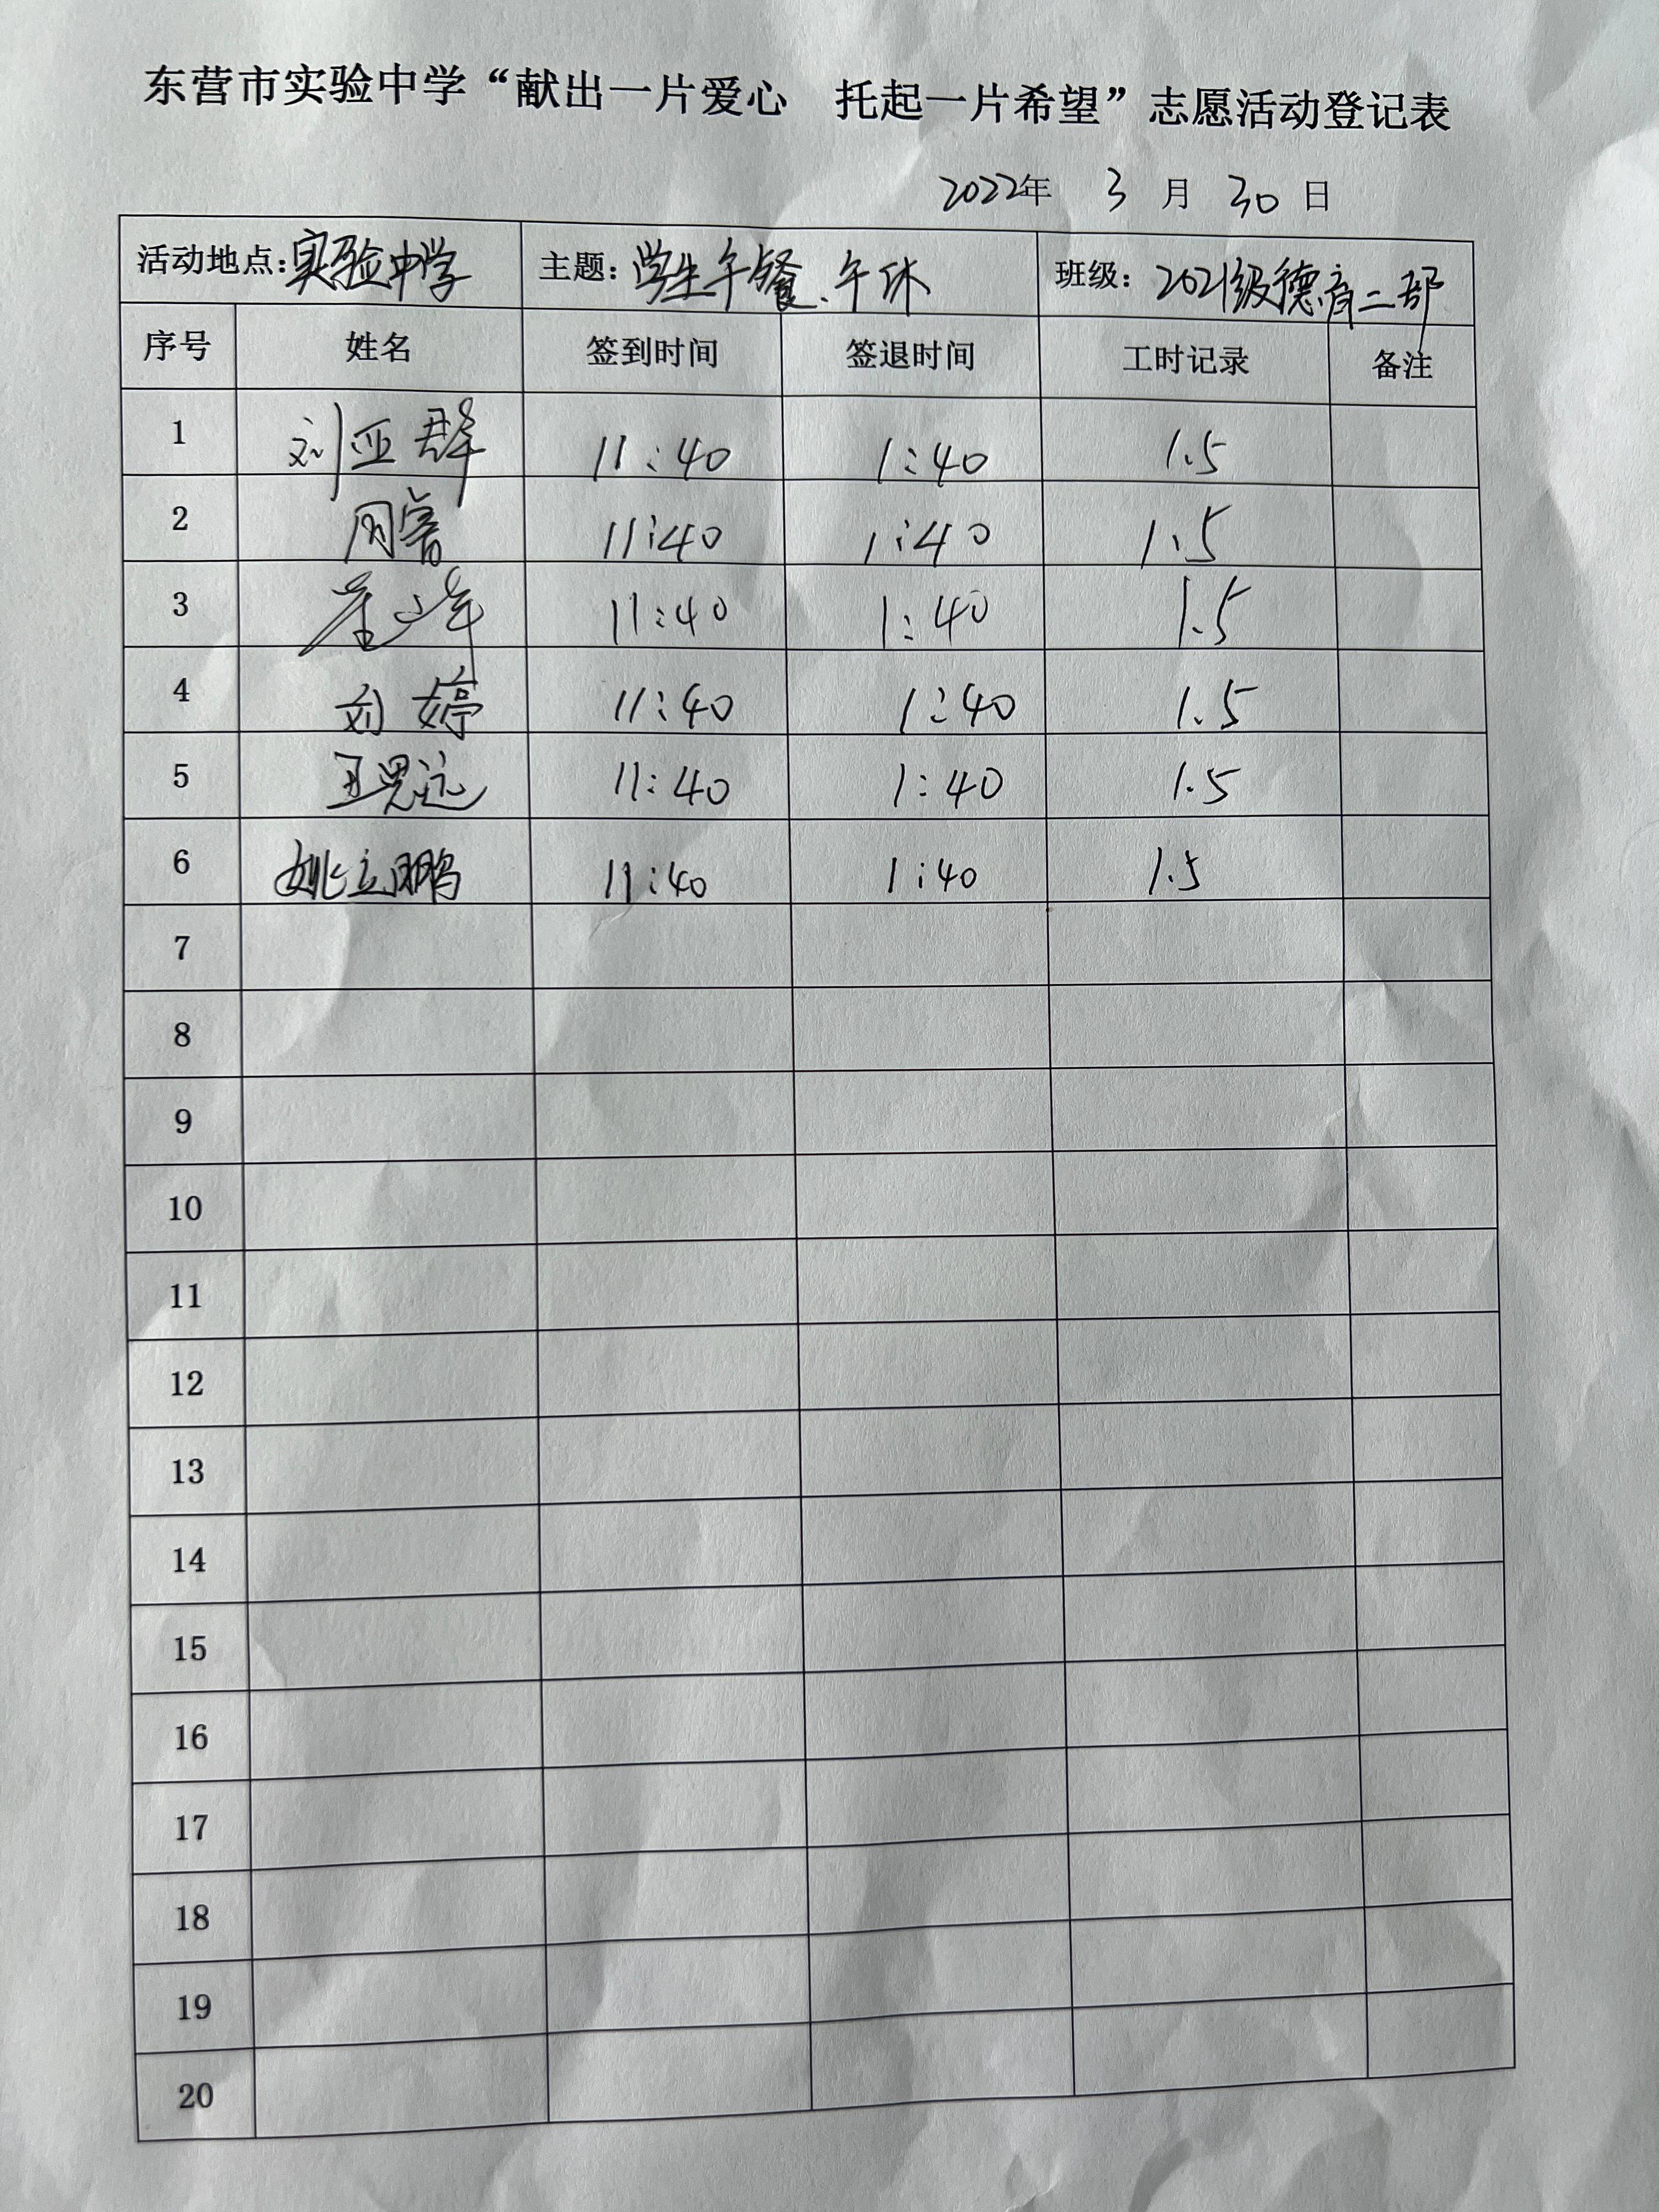 东营市实验中学“献出一片爱心 托起一片希望”志愿活动登记表
2022年 3 月 30 日
活动地点：实验中学 主题：学生午餐、午休 班级：2021级德育二部
序号 姓名 签到时间 签退时间 工时记录 备注
1 刘亚群 11:40 1:40 1.5
2 11:40 1:40 1.5
3 11:40 1:40 1.5
4 刘婷 11:40 1:40 1.5
5 王思远 11:40 1:40 1.5
6 姚立鹏 11:40 1:40 1.5
7
8
9
10
11
12
13
14
15
16
17
18
19
20